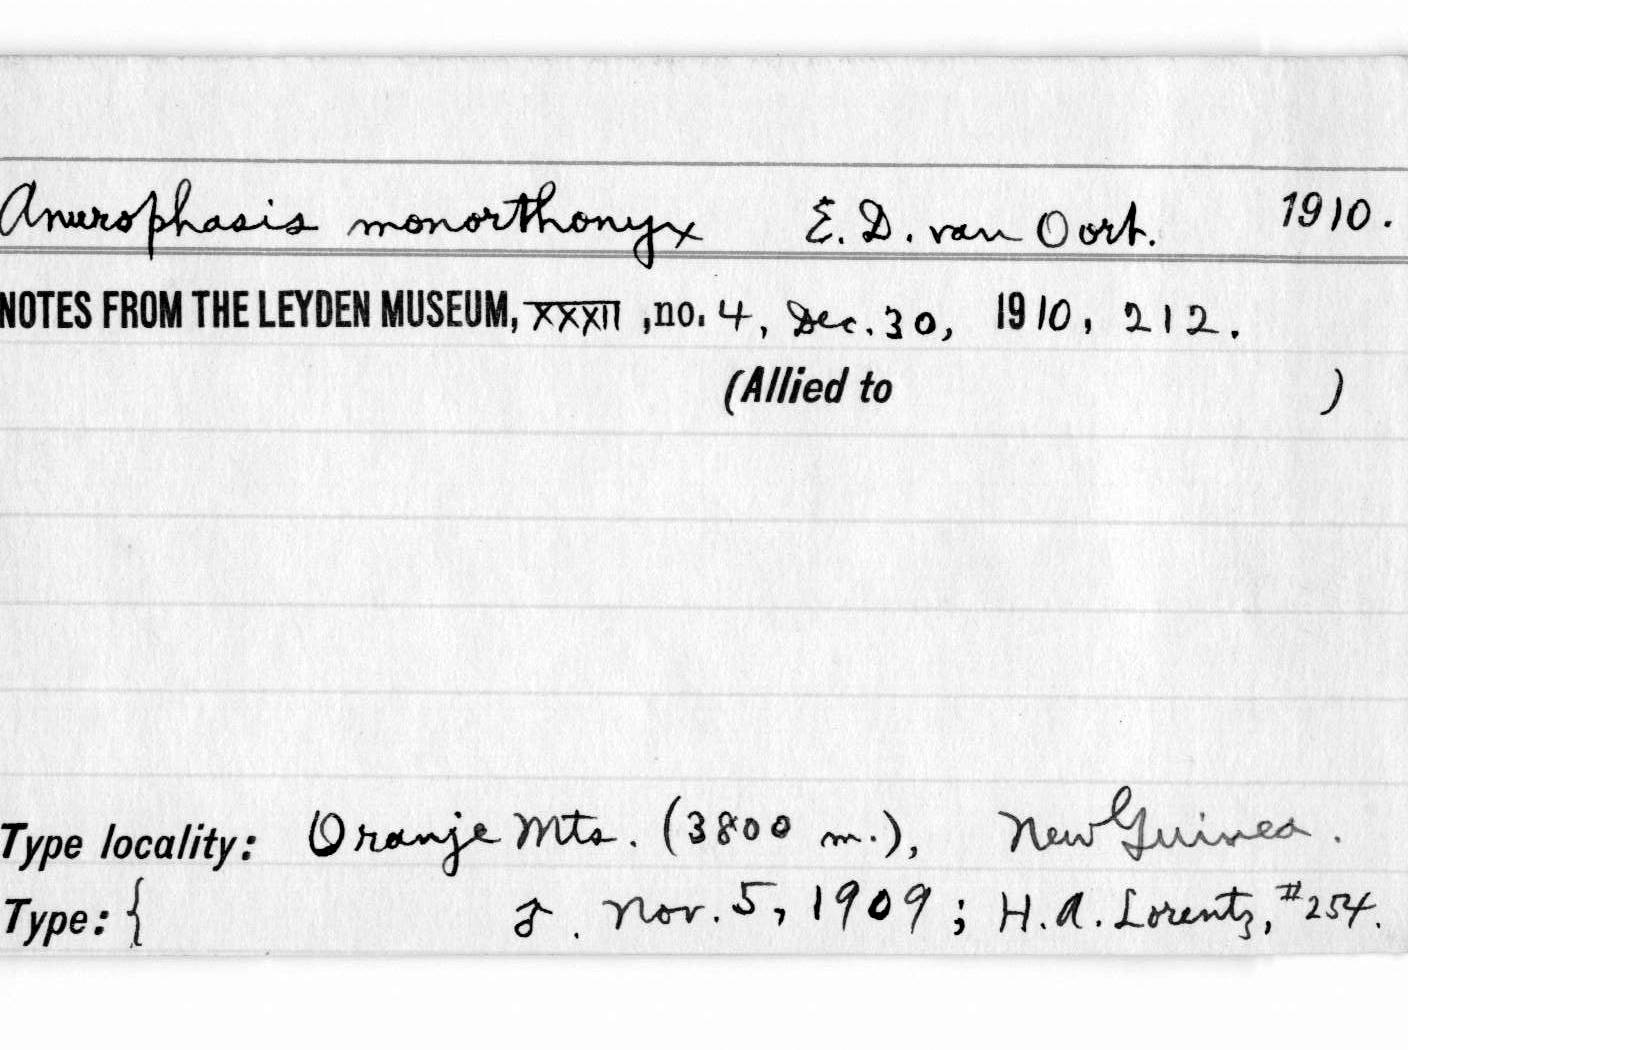 Anurophasis monorthonyx E. D. van Oort. 1910.
NOTES FROM THE LEYDEN MUSEUM, XXXII, no. 4, Dec. 30, 1910, 212.
(Allied to )
Type locality: Oranje Mts. (3800 m.), New Guinea.
Type: { ♂. Nov. 5, 1909; H. A. Lorentz, #254.